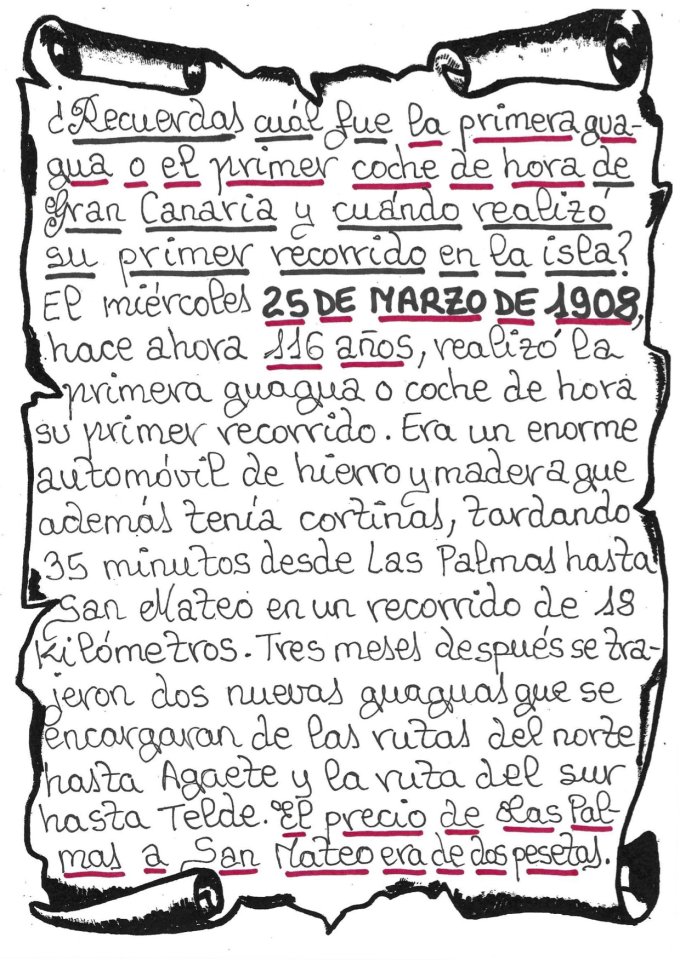 ¿Recuerdas cuál fue la primera gua-
gua o el primer coche de hora de
Gran Canaria y cuándo realizó
su primer recorrido en la isla?
El miércoles 25 DE MARZO DE 1908,
hace ahora 116 años, realizó la
primera guagua o coche de hora
su primer recorrido. Era un enorme
automóvil de hierro y madera que
además tenía cortinas, tardando
35 minutos desde Las Palmas hasta
San Mateo en un recorrido de 18
kilómetros. Tres meses después se tra-
jeron dos nuevas guaguas que se
encargaran de las rutas del norte
hasta Agaete y la ruta del sur
hasta Telde. El precio de Las Pal-
mas a San Mateo era de dos pesetas.